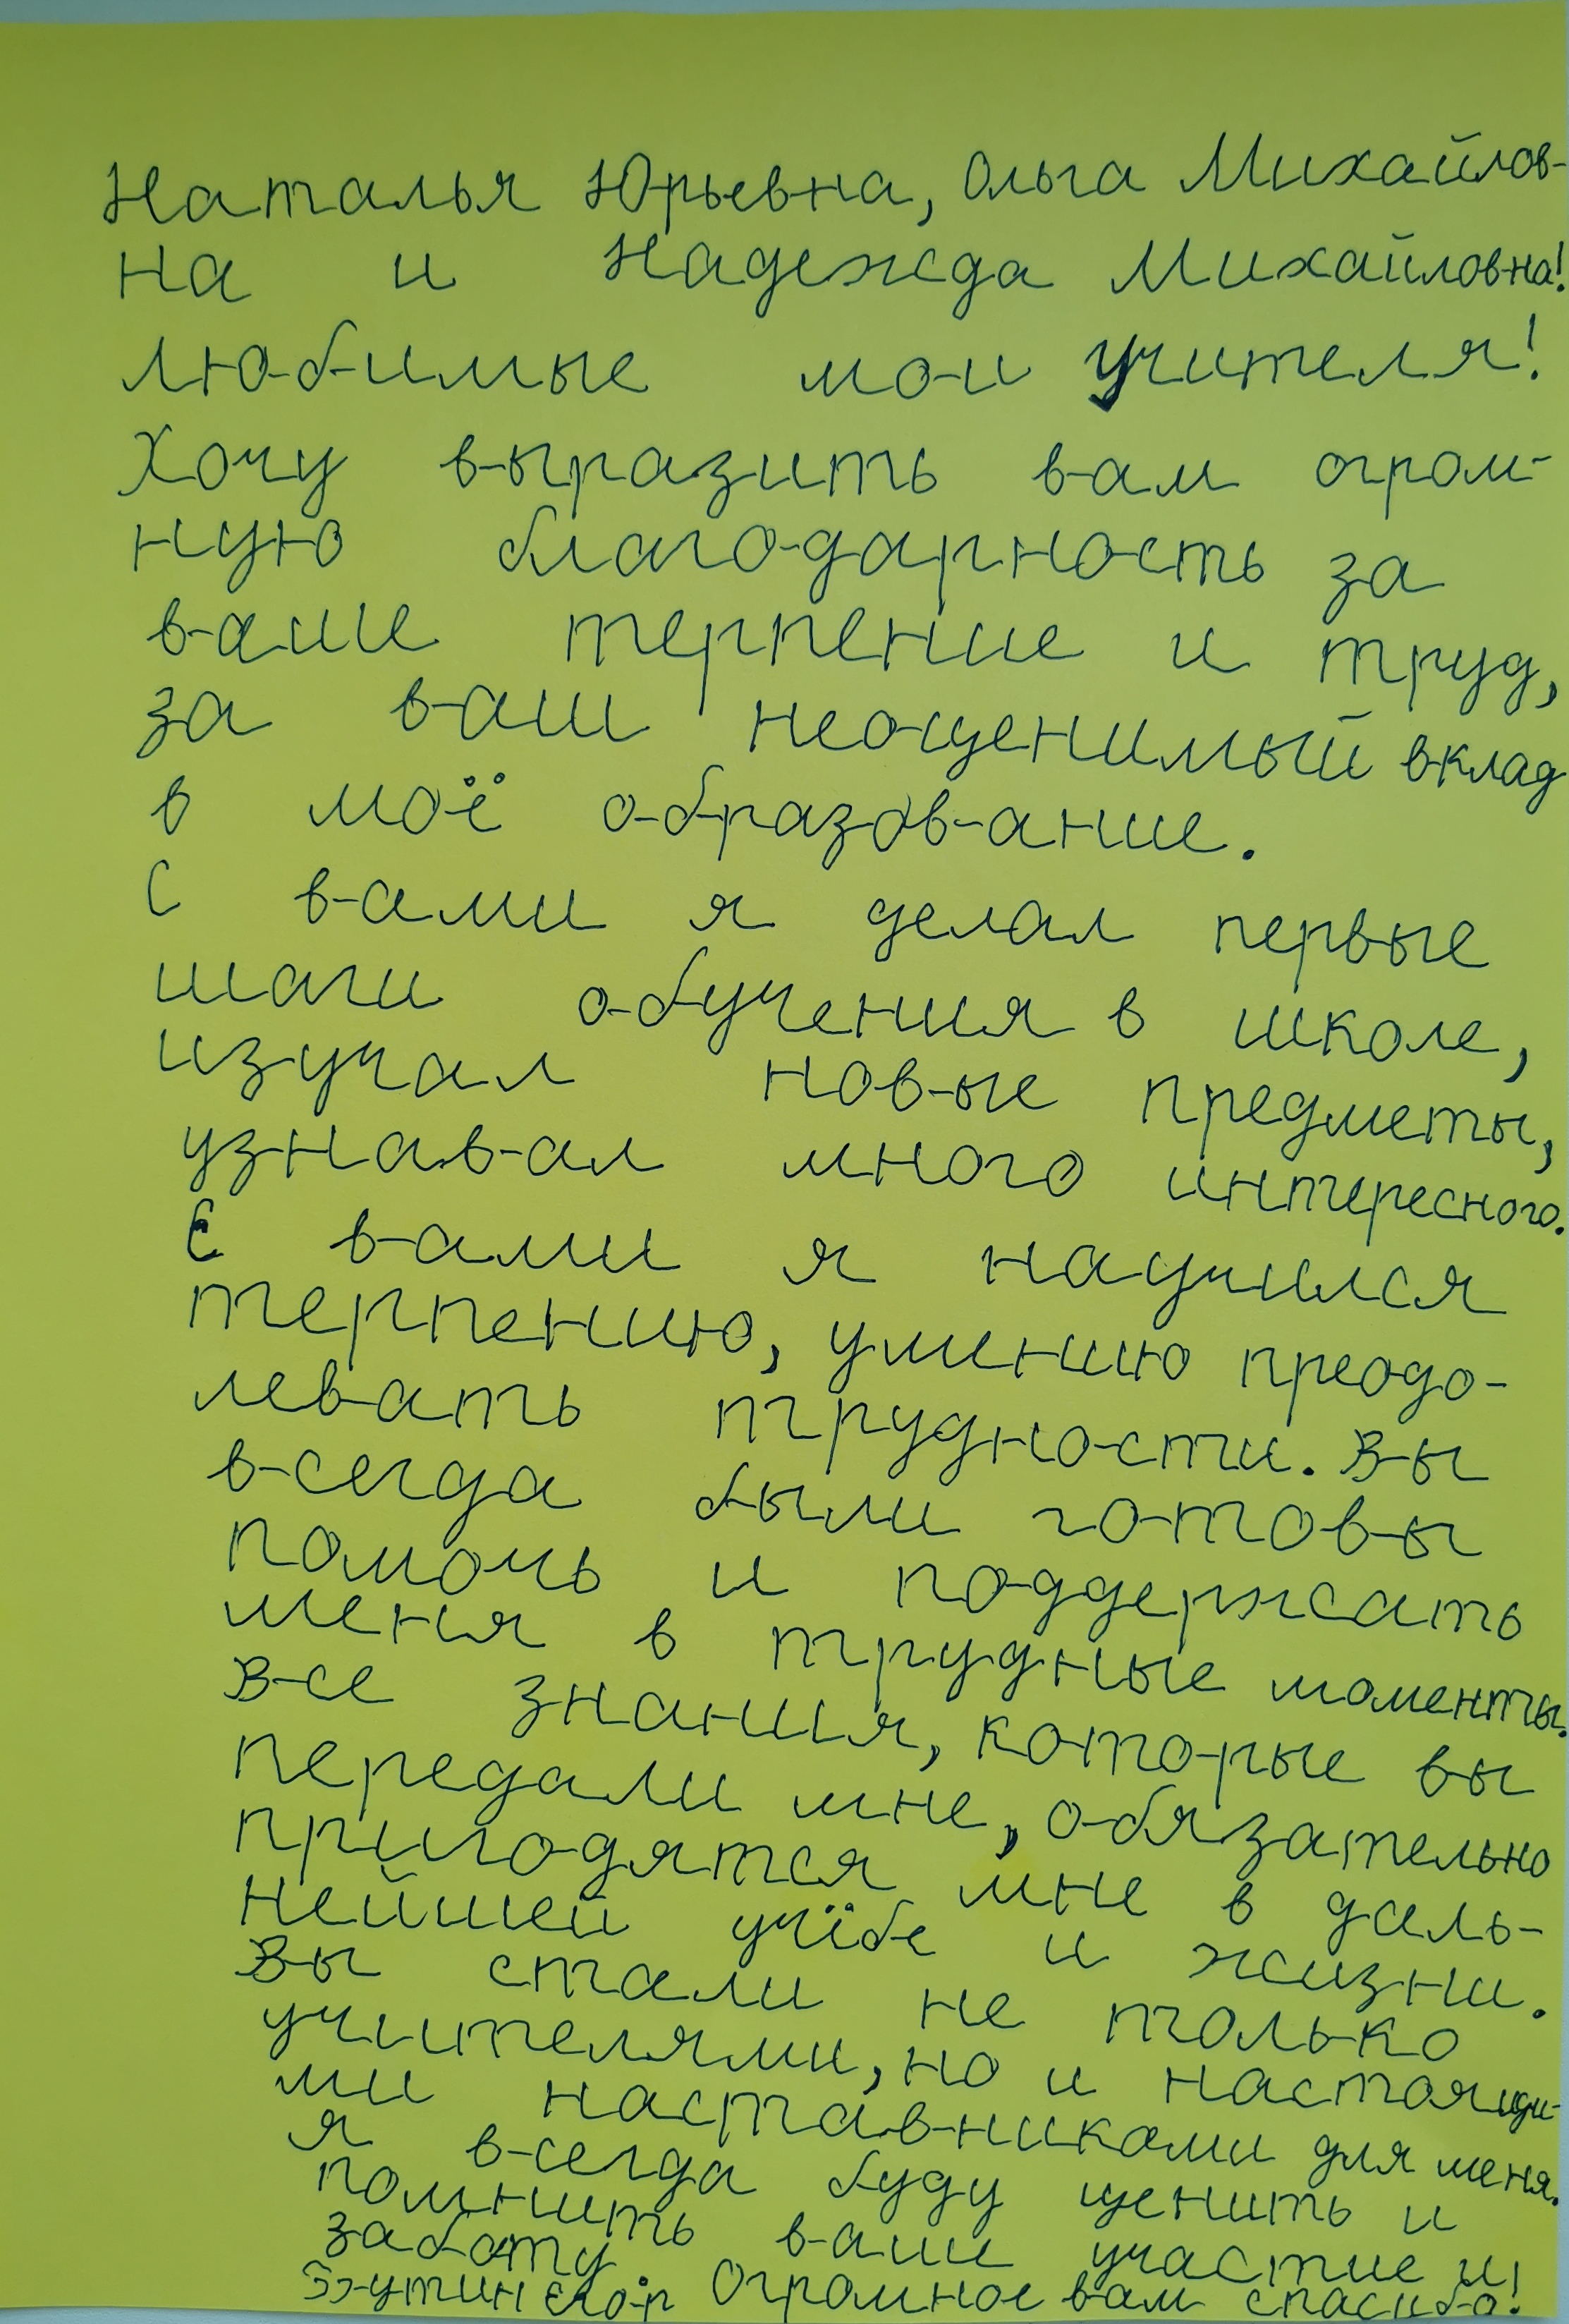 Наталья Юрьевна, Ольга Михайлов-
на и Надежда Михайловна!
Любимые мои учителя!
Хочу выразить вам огром-
ную благодарность за
ваше терпение и труд,
за ваш неоценимый вклад
в моё образование.
С вами я делал первые
шаги обучения в школе,
изучал новые предметы,
узнавал много интересного.
С вами я научился
терпению, умению преодо-
левать трудности. Вы
всегда были готовы
помочь и поддержать
меня в трудные моменты.
Все знания, которые вы
передали мне, обязательно
пригодятся мне в даль-
нейшей учёбе и жизни.
Вы стали не только
учителями, но и настоящи-
ми наставниками для меня.
Я всегда буду ценить и
помнить ваше участие и
заботу. Огромное вам спасибо!
Егор